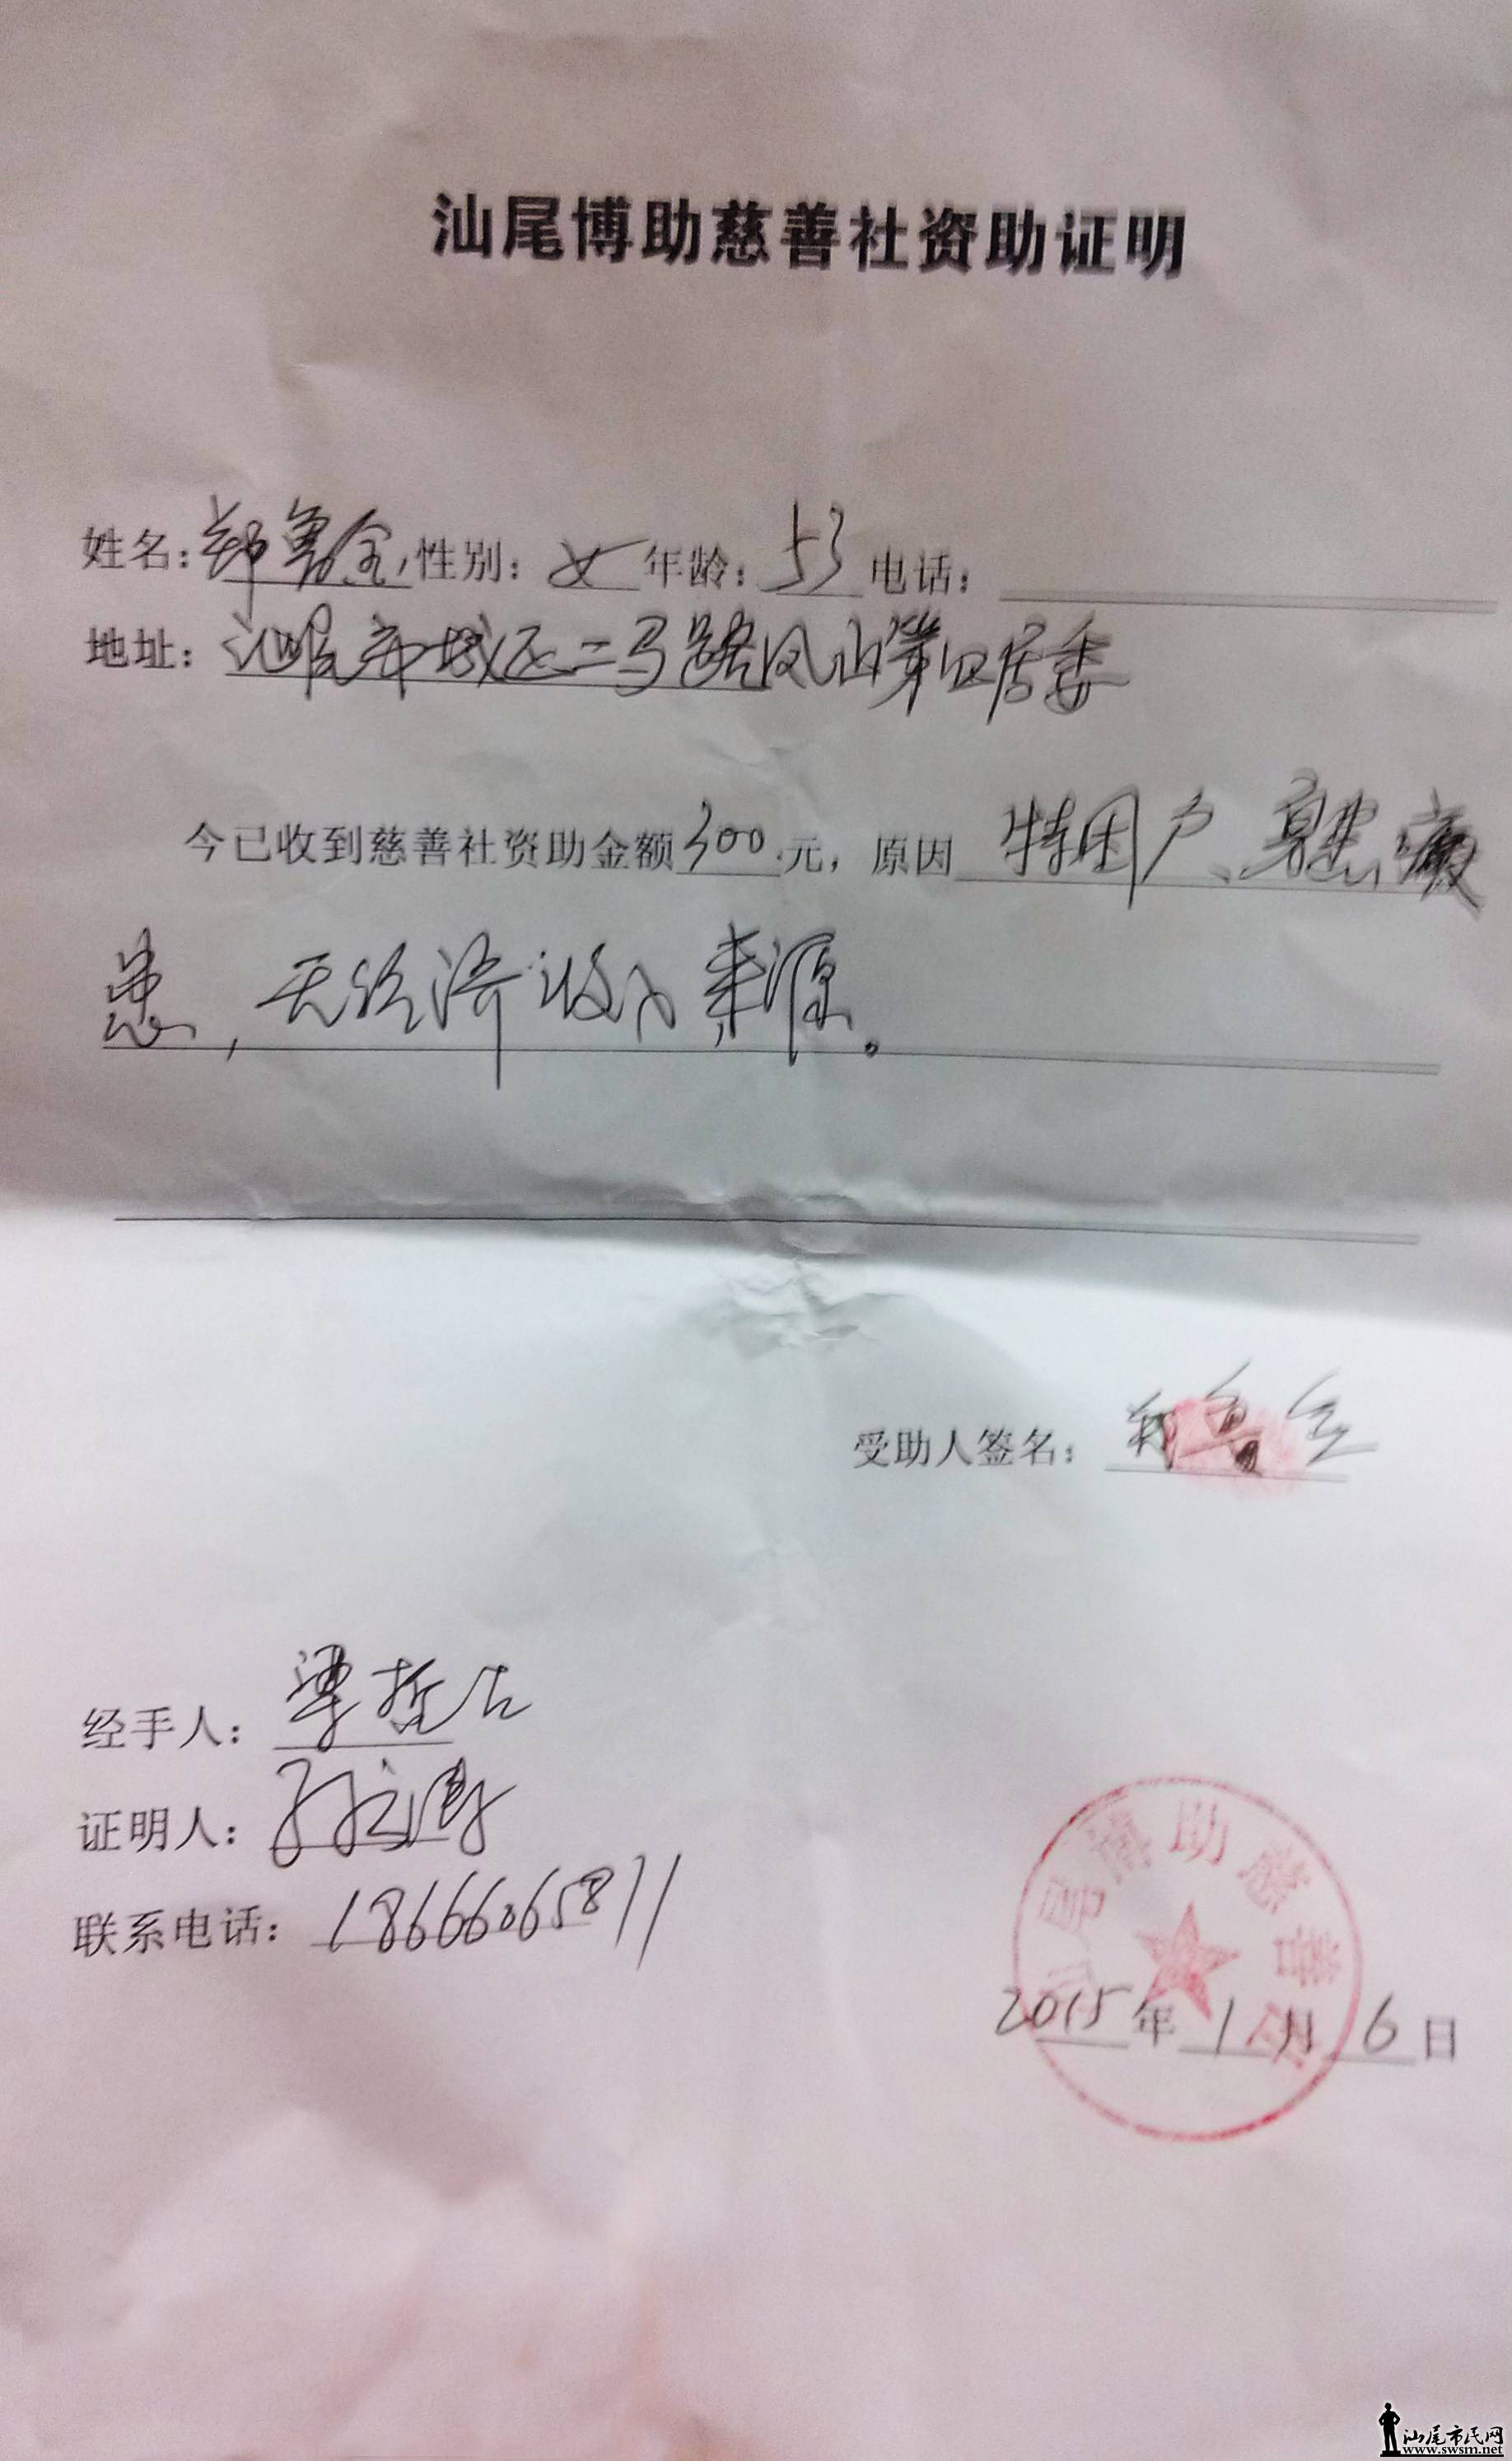 汕尾博助慈善社资助证明
姓名:郑鲁金,性别:女年龄:53电话:
地址:汕尾市城区二马路凤山第四居委
今已收到慈善社资助金额300元,原因 特困户、
患,无经济收入来源。
受助人签名:郑鲁金
经手人:
证明人:
联系电话:18666065811
汕尾博助慈善社
2015年1月6日
汕尾市民网
www.swsm.net